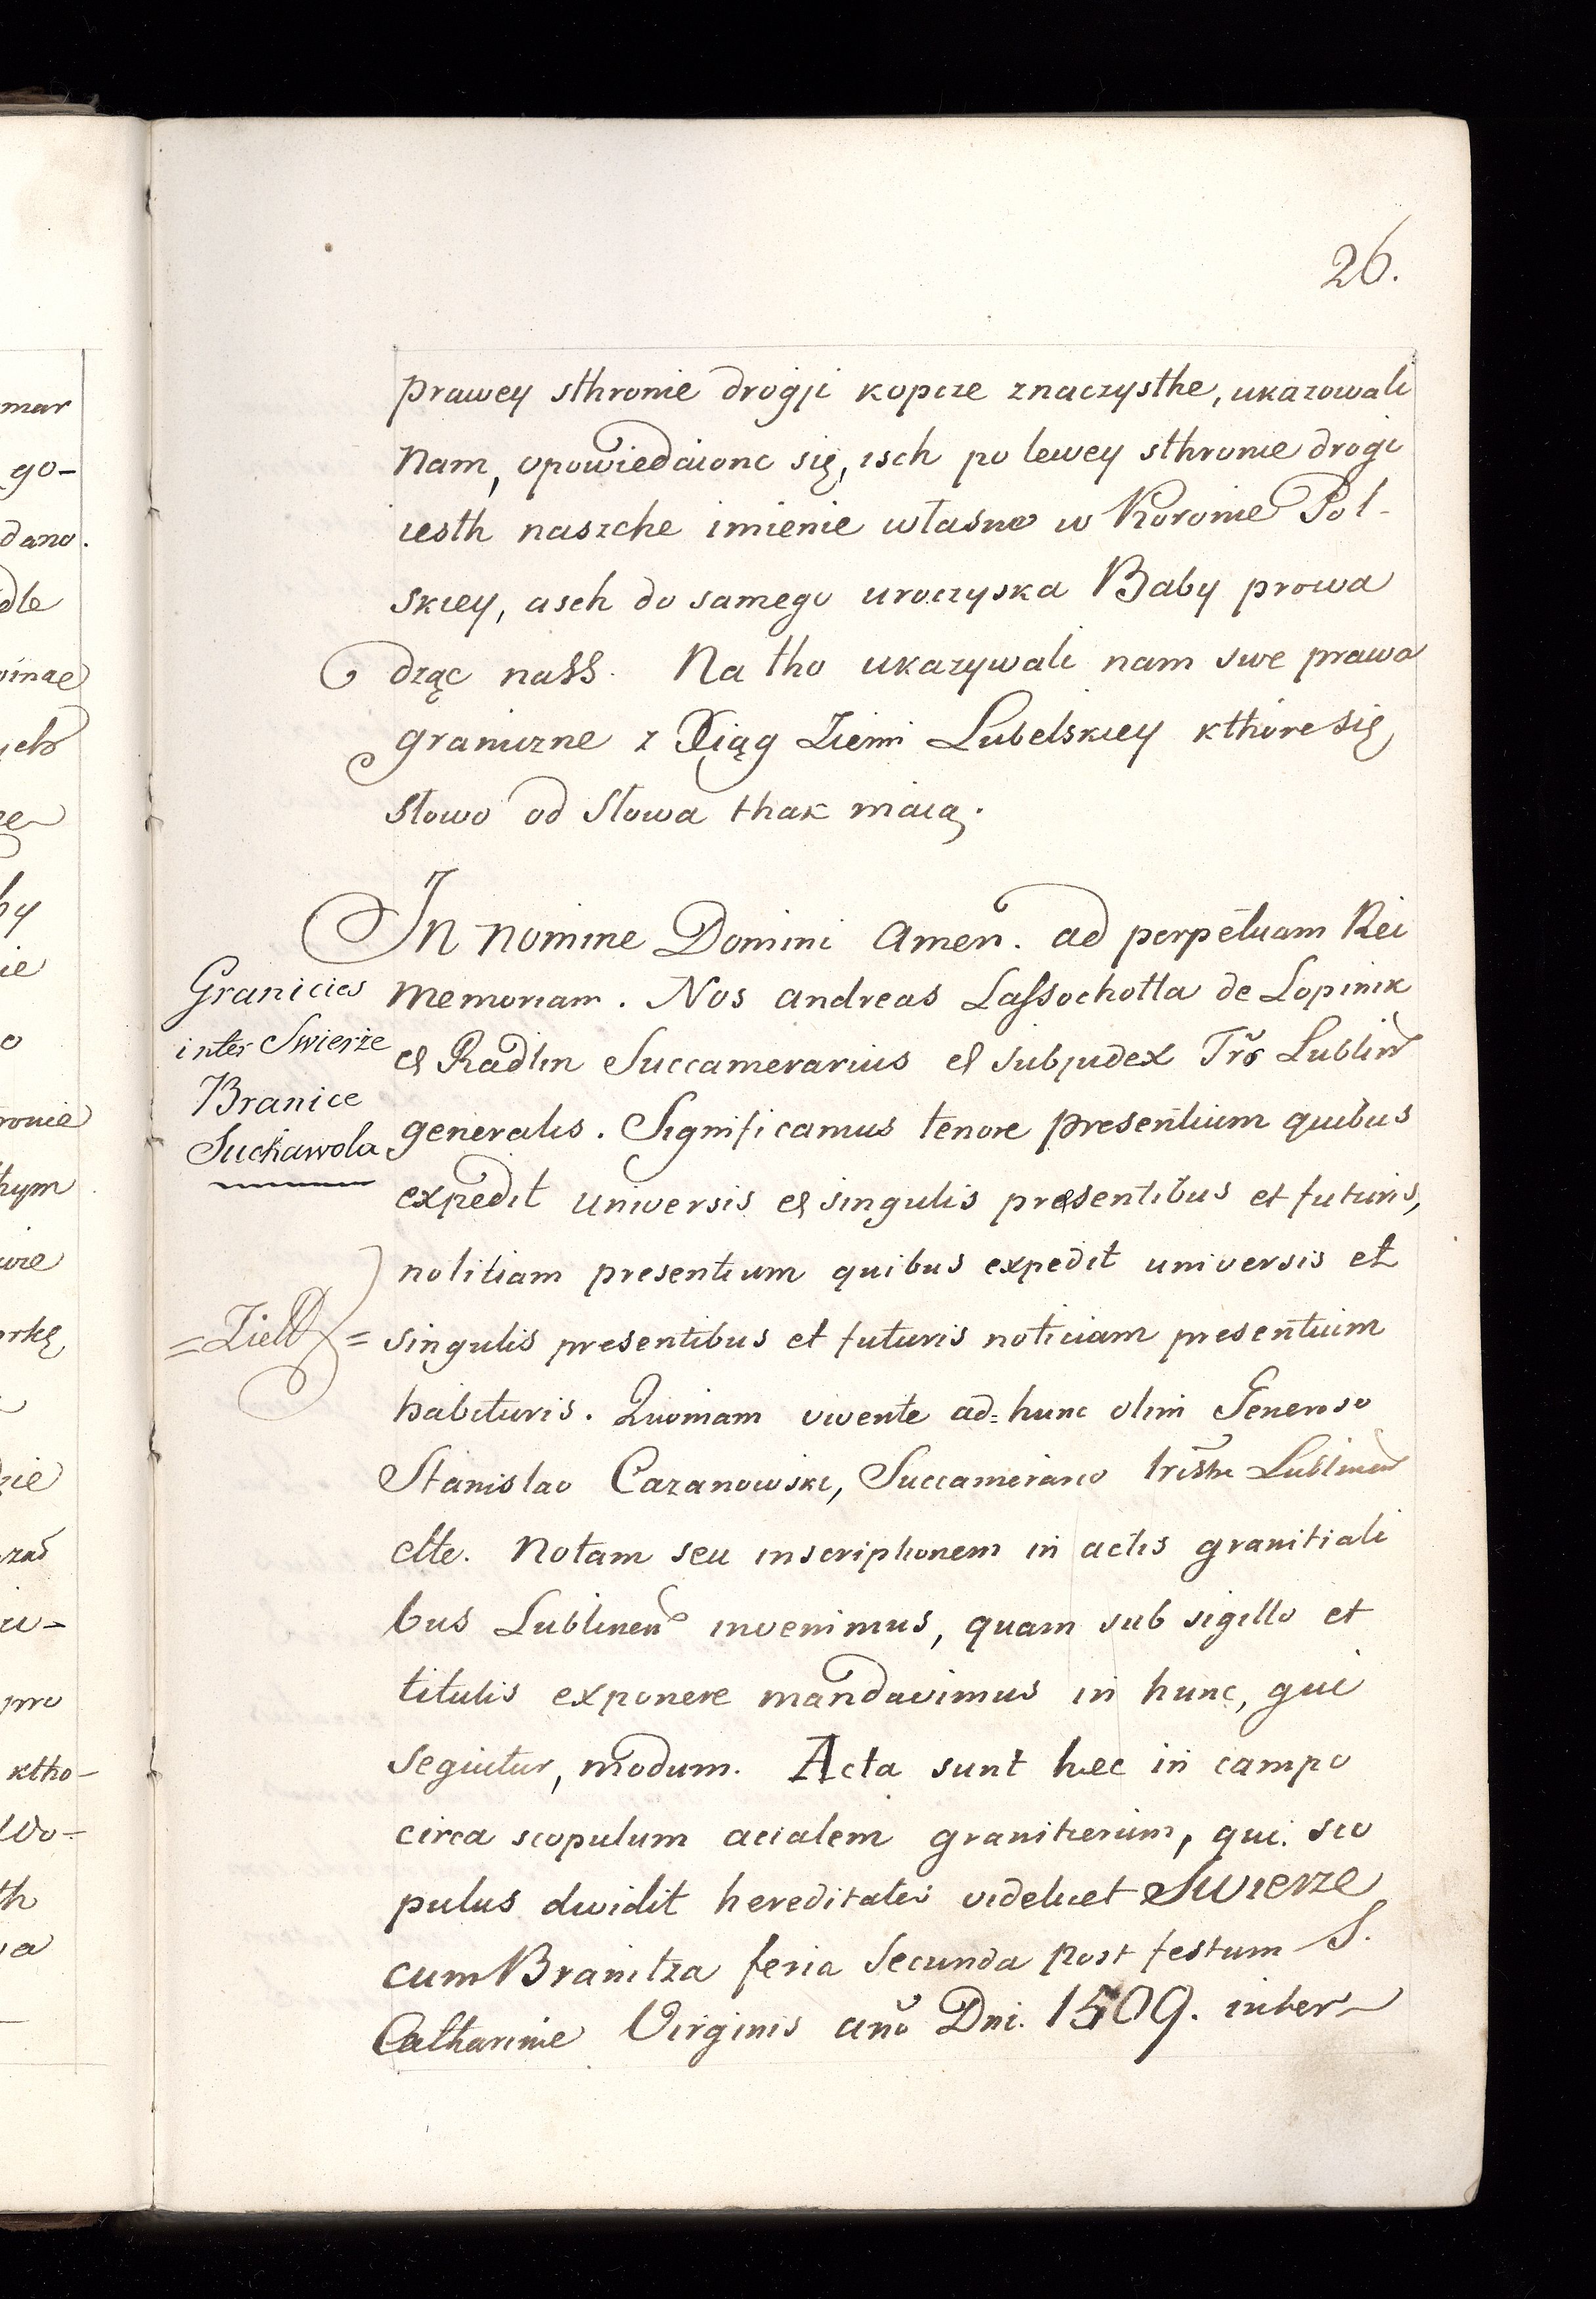 26.
prawey sthronie drogji kopcze znaczysthe, ukazowali
nam, opowiedaionc się, isch po lewey sthronie drogi
iesth naszche imienie własne w Koronie Pol-
skiey, asch do samego uroczyska Baby prowa
dząc nass. Na tho ukazywali nam swe prawa
graniczne z Xiąg Ziemi Lubelskiey kthore się
słowo od słowa thak maią.
In nomine Domini Amen. ad perpetuam Rei
Granicies
inter Swierże
Branice
Suchawola
memoriam. Nos Andreas Lassochotta de Lopinik
et Radlin Succamerarius et Subjudex Trs Lublin
generalis. Significamus tenore presentium quibus
expedit universis et singulis presentibus et futuris,
notitiam presentium quibus expedit universis et
singulis presentibus et futuris noticiam presentium
habituris. Quoniam vivente ad=hunc olim Generoso
Stanislao Cazanowski, Succamerario Lublinen
elte. Notam seu inscriptionem in actis granitiali
bus Lublinen invenimus, quam sub sigillo et
titulis exponere mandavimus in hunc, qui
sequitur, modum. Acta sunt hec in campo
circa scopulum acialem granitierum, qui sco
pulus dividit hereditates videlicet Swierze
cum Branitza feria secunda post festum S.
Catharinie Virginis ano Dni. 1509. inter
mar
go-
dano.
dle
ych
by
ie
ronie
hym
orkę
zie
pro
ktho-
Wo-
th